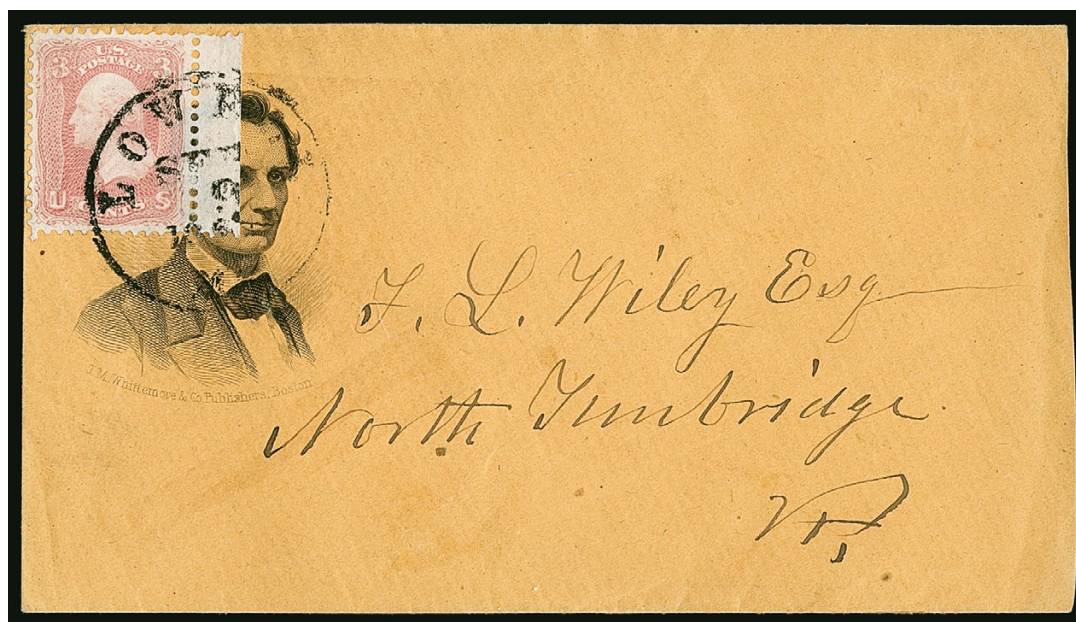 U.S.
POSTAGE
3 3
U CENTS S
LOWE
J.M. Whittemore & Co Publishers, Boston
F. L. Wiley Esq
North Tunbridge
Vt.